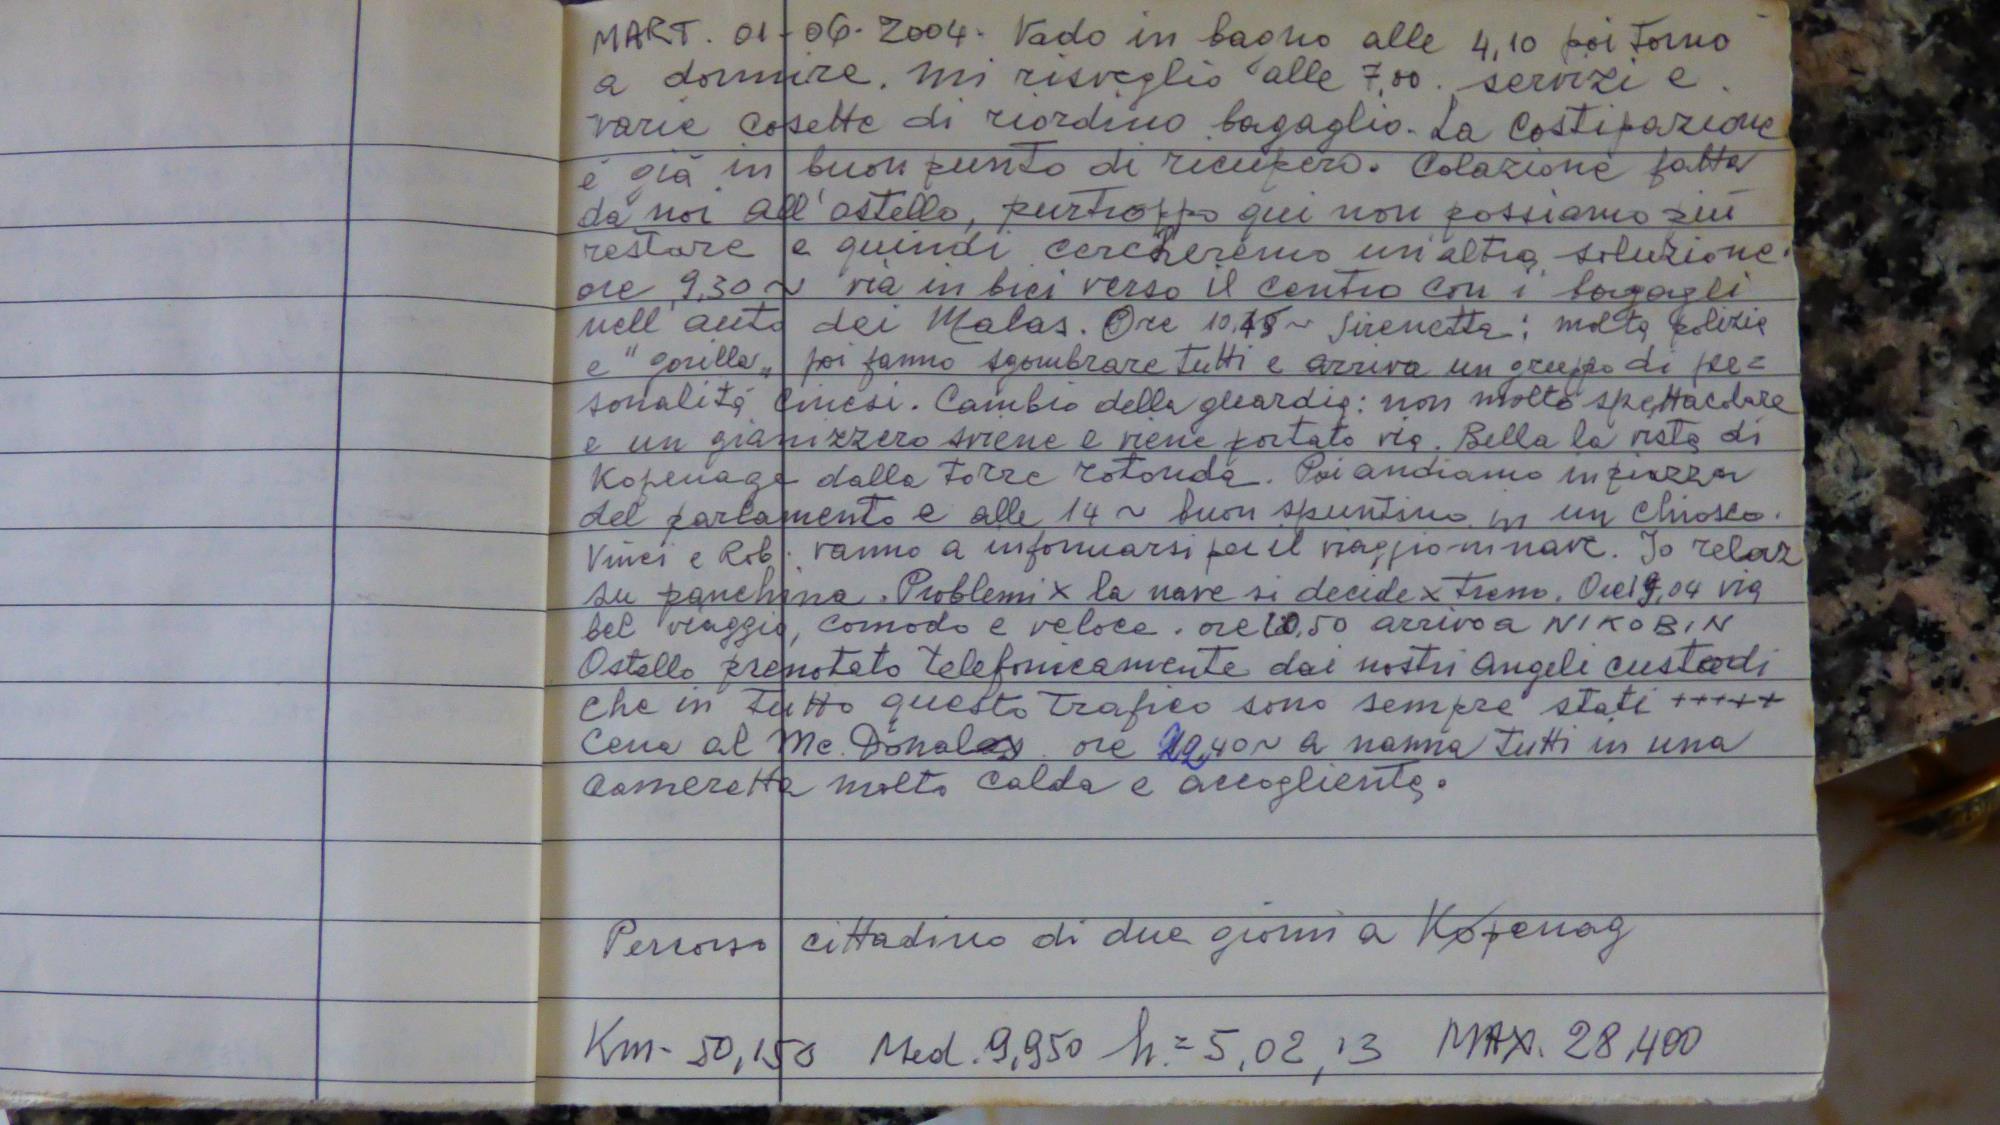 MART. 01-06-2004. Vado in bagno alle 4,10 poi torno
a dormire. mi risveglio alle 7,00. servizi e
varie cosette di riordino bagaglio. La costipazione
è già in buon punto di ricupero. Colazione fatta
da noi all'ostello, purtroppo qui non possiamo più
restare e quindi cercheremo un'altra soluzione.
ore 9,30 ~ via in bici verso il centro con i bagagli
nell'auto dei Malas. Ore 10,45 ~ Sirenetta: molta polizia
e "gorilla" poi fanno sgombrare tutti e arriva un gruppo di per=
sonalità cinesi. Cambio della guardia: non molto spettacolare
e un giannizzero sviene e viene portato via. Bella la vista di
Kopenage dalla torre rotonda. Poi andiamo in piazza
del parlamento e alle 14 ~ buon spuntino in un chiosco.
Vinci e Rob. vanno a informarsi per il viaggio in nave. Io relax
su panchina. Problemi x la nave si decide x treno. Ore 19,04 via
bel viaggio, comodo e veloce. ore 20,50 arrivo a NIKOBIN
Ostello prenotato telefonicamente dai nostri angeli custodi
che in tutto questo trafico sono sempre stati +++++
Cena al Mc. Donalds. ore 22,40 ~ a nanna tutti in una
cameretta molto calda e accogliente.
Percorso cittadino di due giorni a Kopenag
Km- 50,150 Med. 9,950 h.= 5,02,13 MAX. 28,400